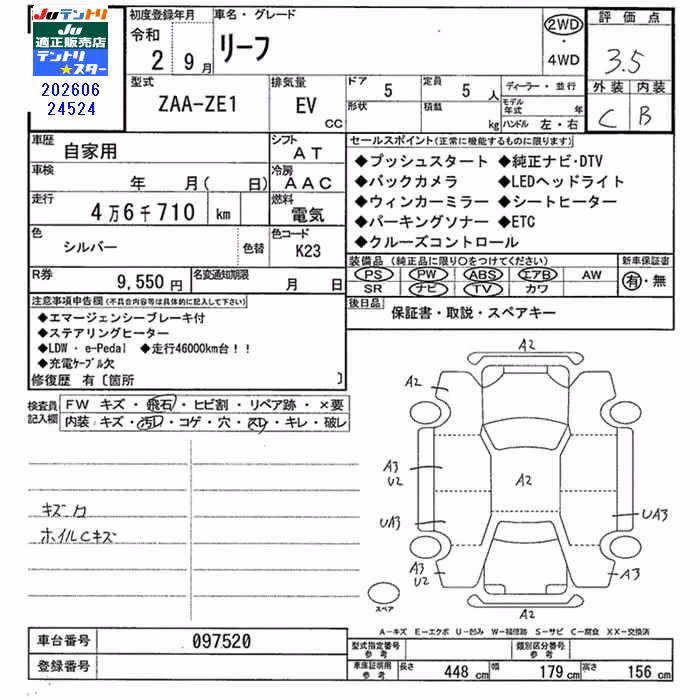 Juテントリ
Ju適正販売店
テントリ
★スター
202606
24524
初度登録年月 車名・グレード 評価点
令和 リーフ 2WD
・
2 9月 4WD 3.5
型式 排気量 ドア 定員 ディーラー・並行 外装 内装
ZAA-ZE1 EV 5 5人 モデル年式 年 C B
CC 形状 積載 kg ハンドル 左・右
車歴 自家用 シフト AT セールスポイント(正常に機能するものに限ります)
車検 年 月( 日) 冷房 AAC
◆プッシュスタート ◆純正ナビ・DTV
◆バックカメラ ◆LEDヘッドライト
走行 4万6千710 km 燃料 電気
◆ウィンカーミラー ◆シートヒーター
◆パーキングソナー ◆ETC
◆クルーズコントロール
色 シルバー 色替 色コード K23
R券 9,550円 名変通知期限 月 日
装備品(純正品に限り〇をつけてください) 新車保証書
PS PW ABS エアB AW 有・無
SR ナビ TV カワ
後日品 保証書・取説・スペアキー
注意事項申告欄(不具合内容等は具体的に記入して下さい)
◆エマージェンシーブレーキ付
◆ステアリングヒーター
◆LDW・e-Pedal ◆走行46000km台!!
◆充電ケーブル欠
修復歴 有〔箇所 〕
検査員記入欄 FW キズ・飛石・ヒビ割・リペア跡・×要
内装・キズ・汚レ・コゲ・穴・スレ・キレ・破レ
キズ
ホイルCキズ
A2
A2
A3
U2
A2
UA3
UA3
A3
U2
A3
A2
スペア
A-キズ E-エクボ U-凹み W-補修跡 S-サビ C-腐食 XX-交換済
車台番号 097520
登録番号
型式指定番号 参考 類別区分番号 参考
車庫証明用 参考 長さ 448cm 幅 179cm 高さ 156cm